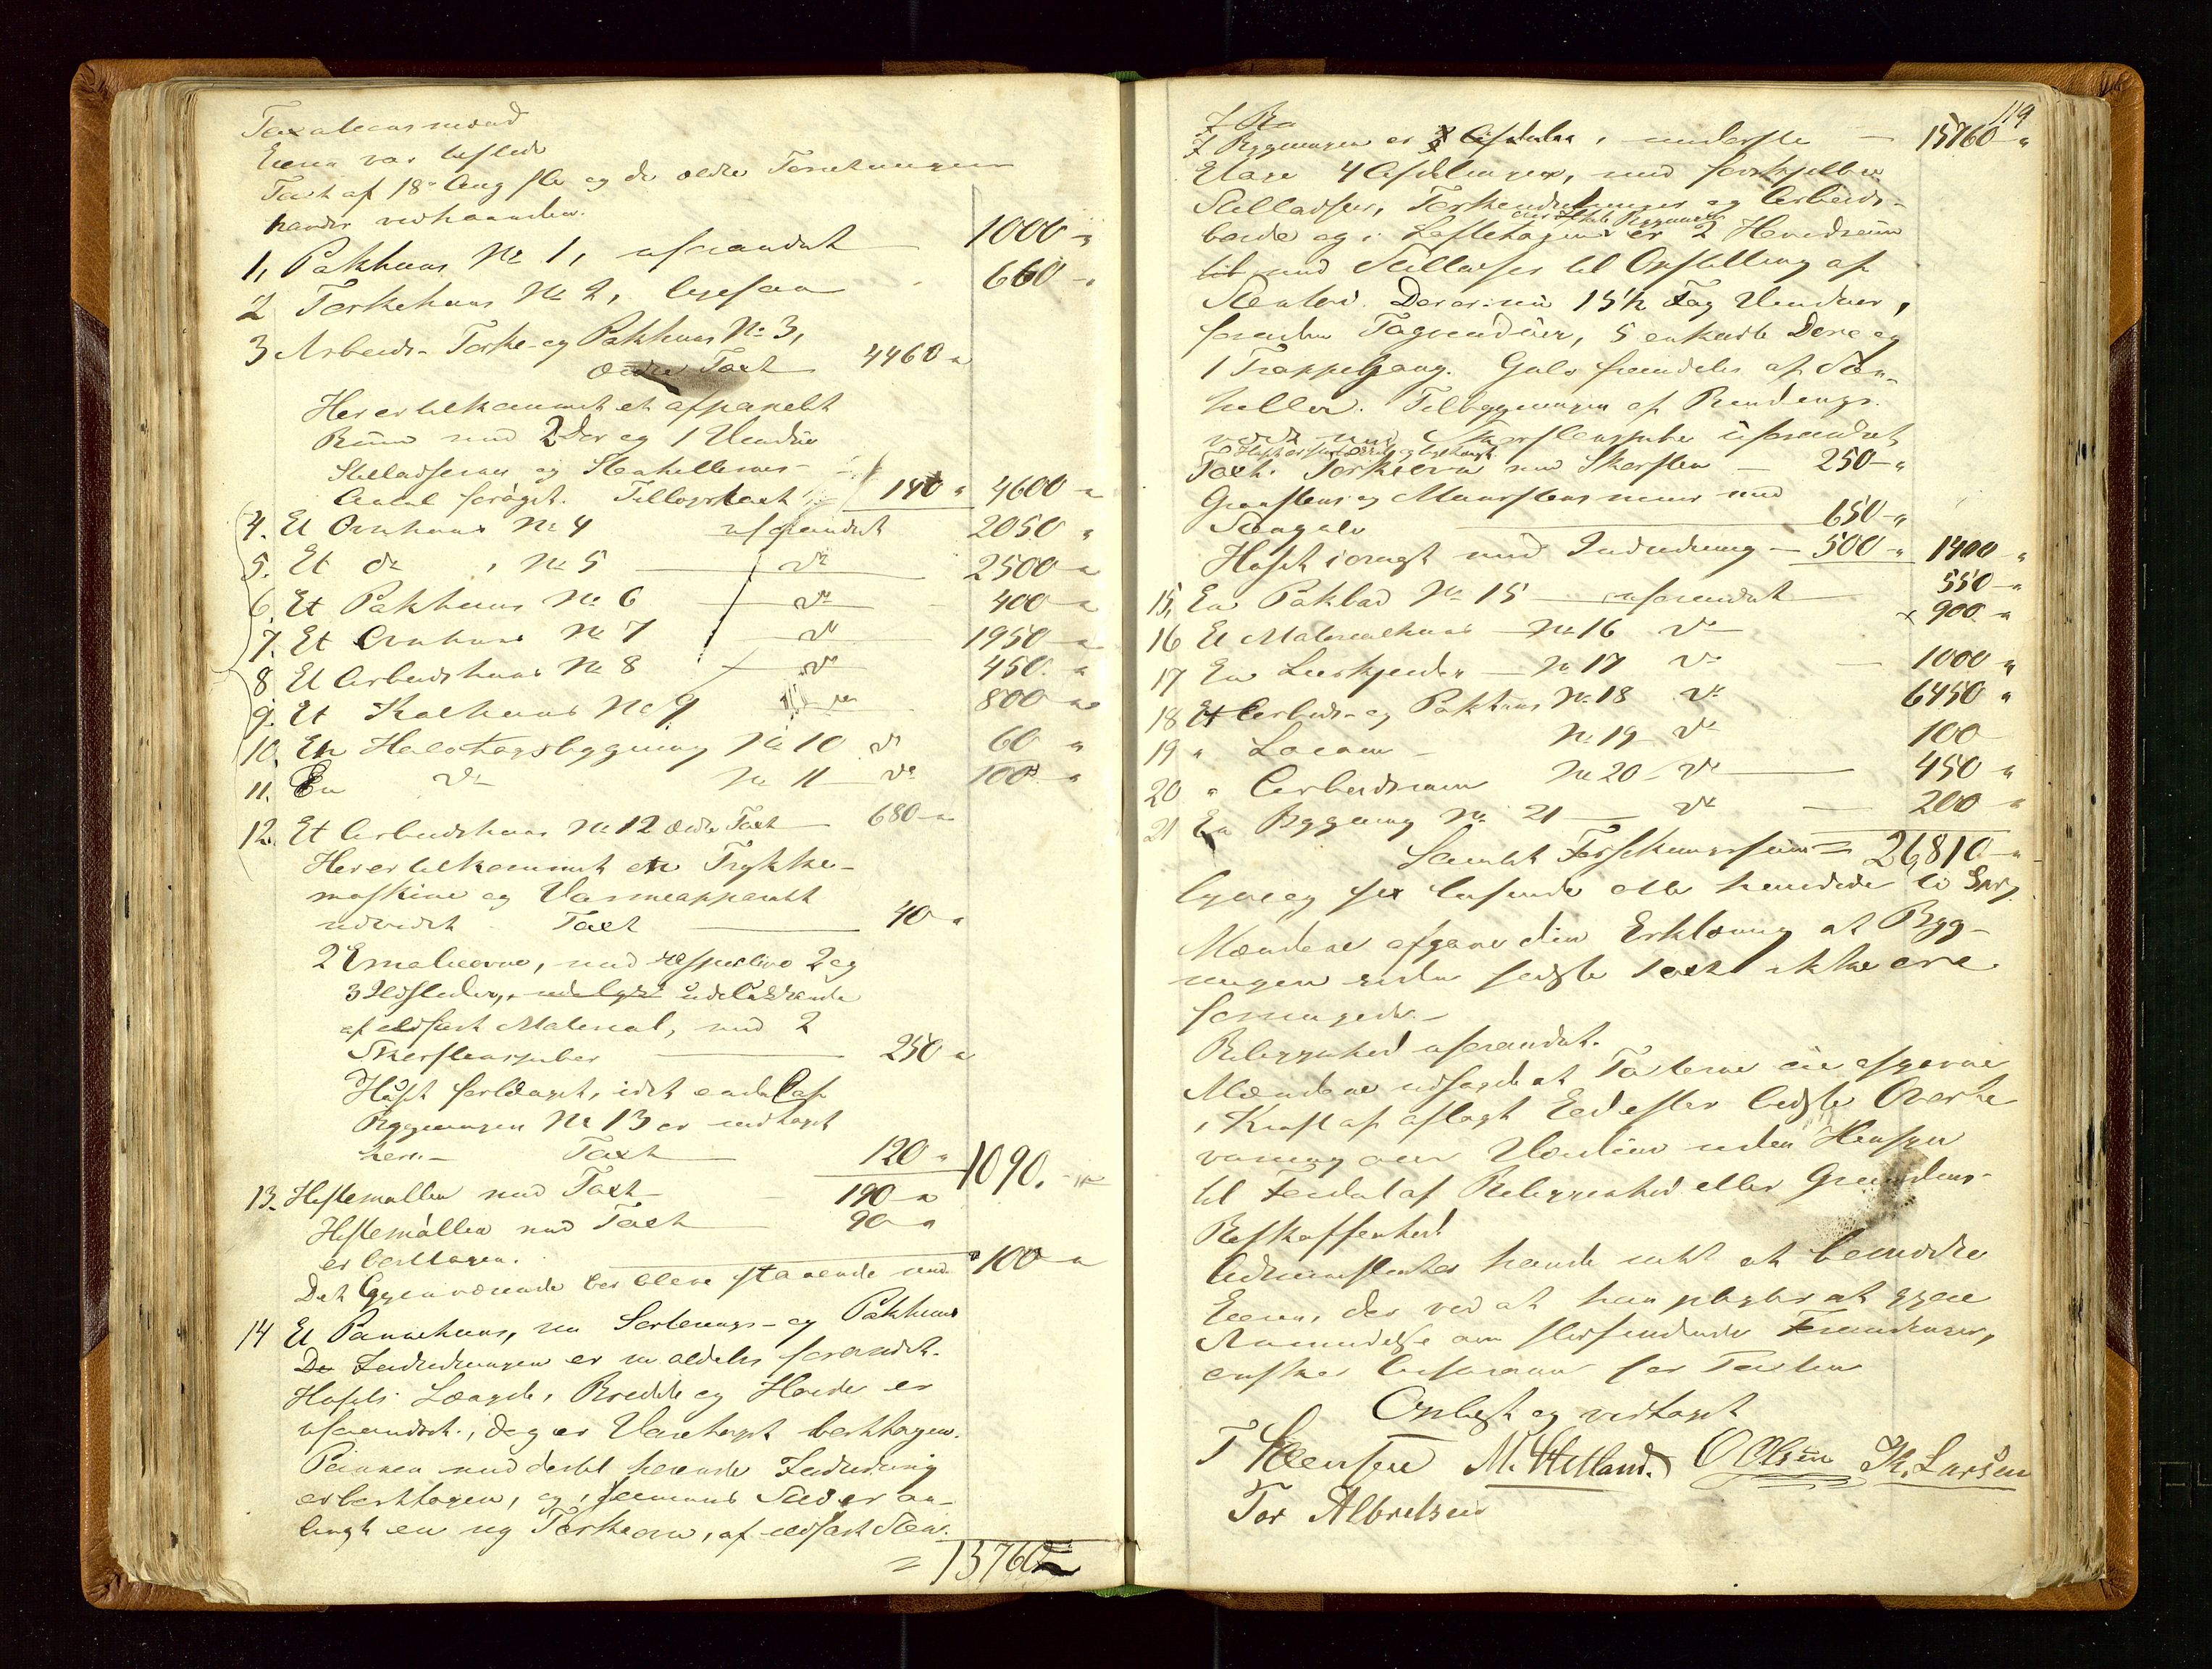 Taxationsmænd
Eieren var tilstede
Taxt af 18de Aug og de ældre Forretninger
havdes vedhaanden.
1, Pakhuus No 1, uforandret 1000 "
2 Tørkehuus No 2, ligesaa 660 "
3 Arbeids- Tørke- og Pakhuus No 3,
ældre Taxt 4460 "
Her er tilkommet et afpanelt
Rum med 2 Dør og 1 Vindue
Stilladserne og Steenhellernes
Antal forøget. Tillægstaxt 140 " 4600 "
4. Et Ovnhuus No 4 uforandret 2050 "
5. Et do , No 5 do 2500 "
6. Et Pakhuus No 6 do 400 "
7. Et Ovnhuus No 7 do 1950 "
8 Et Arbeidshuus No 8 do 450 "
9. Et Kulhuus No 9 do 800 "
10. En Halvtagsbygning No 10 do 60 "
11. En do No 11 do 100 "
12. Et Arbeidshuus No 12 ældre Taxt 680 "
Her er tilkommet en Trykke-
maskine og Varmeapparatet
udvidet Taxt 40 "
2 Emalieovne, med respective 2 og
3 Ildsteder, udelukkende
af ildfast Material, med 2
Skorsteenspiber 250 "
Huset forlænget, idet endel af
Bygningen No 13 er indtaget
heri Taxt 120 " 1090. "
13. Hestemøllen med Taxt 190 "
Hestemøllen med Taxt 90 "
er borttagen.
Det Gjenværende bør blive staaende med 100 "
14 Et Pannehuus, nu Sorterings- og Pakhuus
De Indredningen er nu aldeles forandret.
Husets Længde, Bredde og Høide er
uforandret, dog er Vandtaget borttagen.
Pannen med dertil hørende Indredning
er borttagen, og i sammes Sted er an-
bragt en ny Tørkeovn, af ildfast Steen.
= 15760 "
119
15760 "
I Bygningen er i underste
Etage 4 Afdelinger, med forskjellige
Stilladser, Tørkeindretninger og Arbeids-
borde og i Loftetagen over hele Bygningen er 2 Hovedrum
med Stilladser til Opstilling af
Steentøi. Der er nu 15 1/2 Fag Vinduer,
foruden Tagvinduer, 5 enkelte Døre og
1 Trappegang. Gulv fremdeles af Steen-
heller. Tilbygningen af Bindings-
værk med Skorsteenspibe uforandret,
Taxt. Tørkeovn med Skorsten 250 "
Graasteens og Muursteens muur med
Steengulv 650 "
Huset iøvrigt med Indredning 500 " 1400 "
15, En Paklad No 15 uforandret 550 "
16 Et Materialhuus No 16 do x 900 "
17 En Leerkjelder No 17 do 1000 "
18 Et Arbeids- og Pakhuus No 18 do 6450 "
19 " Locum No 19 do 100
20 " Arbeidsrum No 20 do 450 "
21 En Bygning No 21 do 200 "
Samlet Forsikringssum = 26,810 "
Mændene afgave den Erklæring at Byg-
ningen siden sidste Taxt ikke ere
forringede.
Beliggenhed uforandret.
Mændene udsagde at Taxterne ere afgivne
i Kraft af aflagt Eed efter bedste Overbe-
viisning om Værdien uden Hensyn
til Fordel af Beliggenhed eller Grundens
Beskaffenhed
Administrator havde intet at bemærke
Eieren, der ved at han pligter at gjøre
Anmeldelse om stedfindende Forandringer,
ønsker Assurance for Taxten
Oplæst og vedtaget
T Steensen M. Helland. O Olsen Th. Larsen
Tor Albretsen